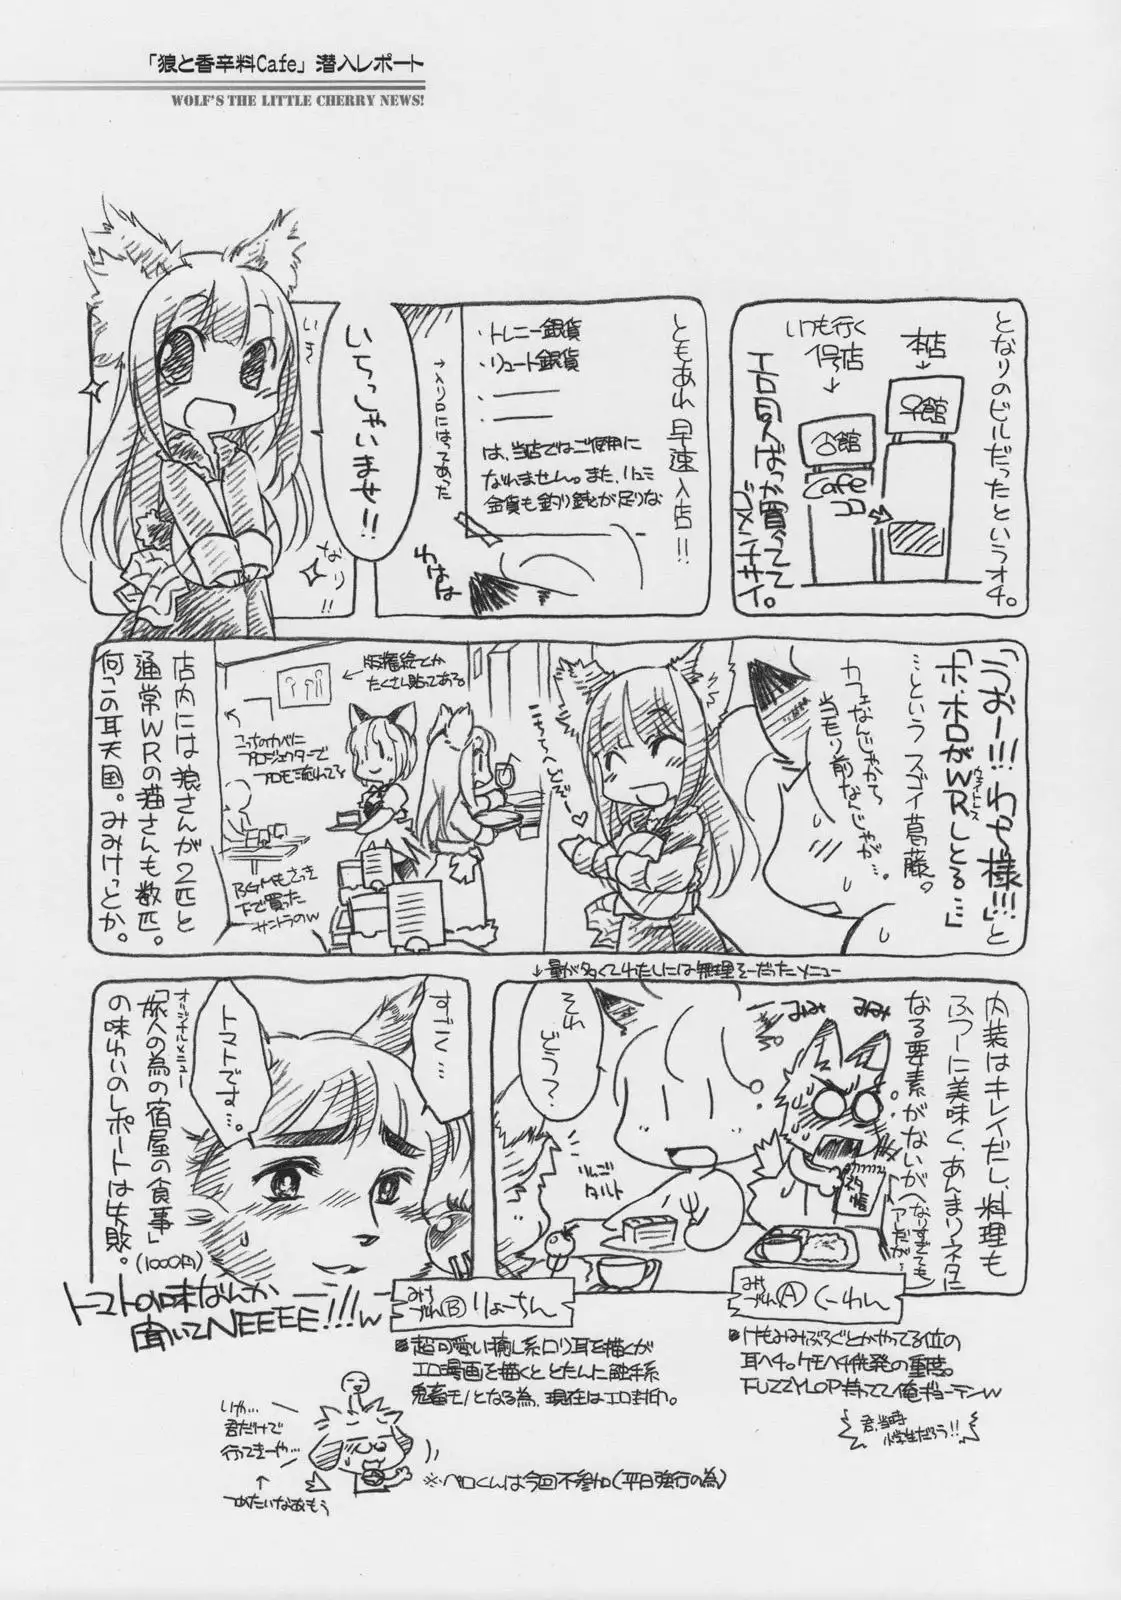 「狼と香辛料Cafe」潜入レポート
WOLF'S THE LITTLE CHERRY NEWS!
となりのビルだったというオチ。
本店
いつも行く
1号店
↓
↓
Cafe
ココ
エロ同人ばっか買ってて
ゴメンナサイ。
ともあれ早速入店!!
・トレニー銀貨
・リュート銀貨
・――
・――
は、当店ではご使用に
なれません。また、リュミ
金貨も釣り銭が足りな
→入り口にはってあった
わはは
いらっしゃいませ!!
なり!!
「うおー!!!わっち様!!!」と
「ホ、ホロがWRしとる…」
ウェイトレス
…という スゴイ葛藤。
カフェなんじゃから
当たり前なんじゃが…。
こちらへどぞー♡
版権絵とか
たくさん貼ってある。
こっちのカベに
プロジェクターで
プロモ流れてる
BGMもさっき
下で買った
サントラのw
店内には狼さんが2匹と
通常WRの猫さんも数匹。
何この耳天国。みみけっとか。
↓量が多くてわたしには無理そーだったメニュー
内装はキレイだし、料理も
ふつーに美味く、あんまりネタに
なる要素がないが
(なりすぎても)
(アレだが…)
みみ
みみ
それ
どう?
りんご
タルト
みけ
づれ
Ⓐ くーわん
すごく…
トマトです…。
オリジナルメニュー
「旅人の為の宿屋の食事」
(1000円)
の味わいのレポートは失敗。
トマトの味なんか
聞いてNEEEE!!!w
みけ
づれ
Ⓑ りょーちん
■超可愛い癒し系ロリ耳を描くが
エロ漫画を描くととたんに触手系
鬼畜モノとなる為、現在はエロ封印。
■けもみみぶろぐとかやってる位の
耳ヘチ。ケモヘチ併発の重度。
FUZZYLOP持ってて俺ギョーテンw
君、当時
小学生だろう!!
いや…
君だけで
行ってきーや…
↑
つめたいなぁもう
※ベロくんは今回不参加(平日強行の為)